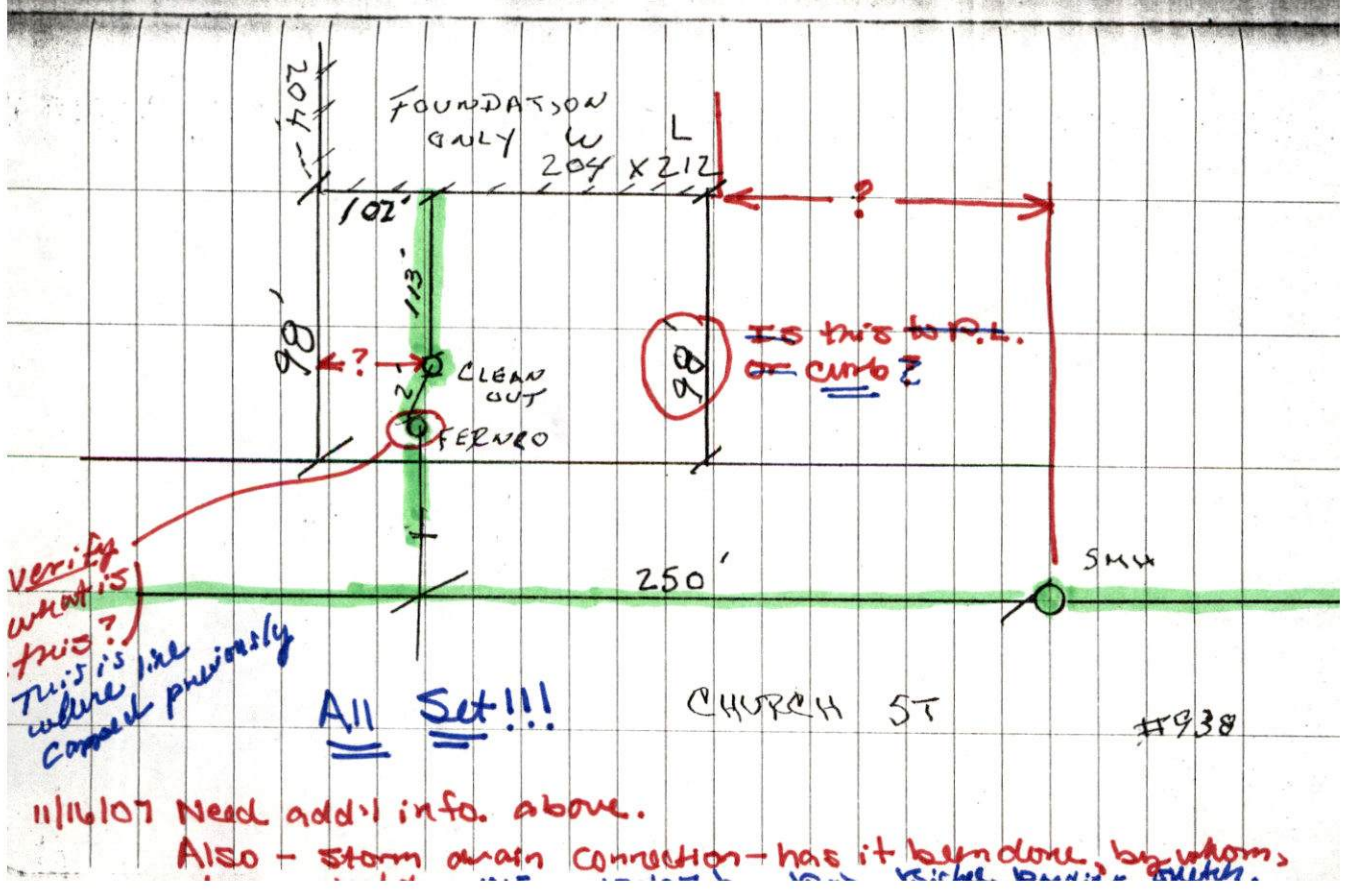 204'
FOUNDATION
ONLY W L
204 x 212
102'
?
113'
98'
?
CLEAN
OUT
2'
FERNCO
98'
Is this to P.L.
or curb?
verify
what is
this?
This is
where line
capped previously
250'
SMH
All Set!!!
CHURCH ST
#938
11/16/07 Need add'l info. above.
Also - storm drain connection - has it been done, by whom,